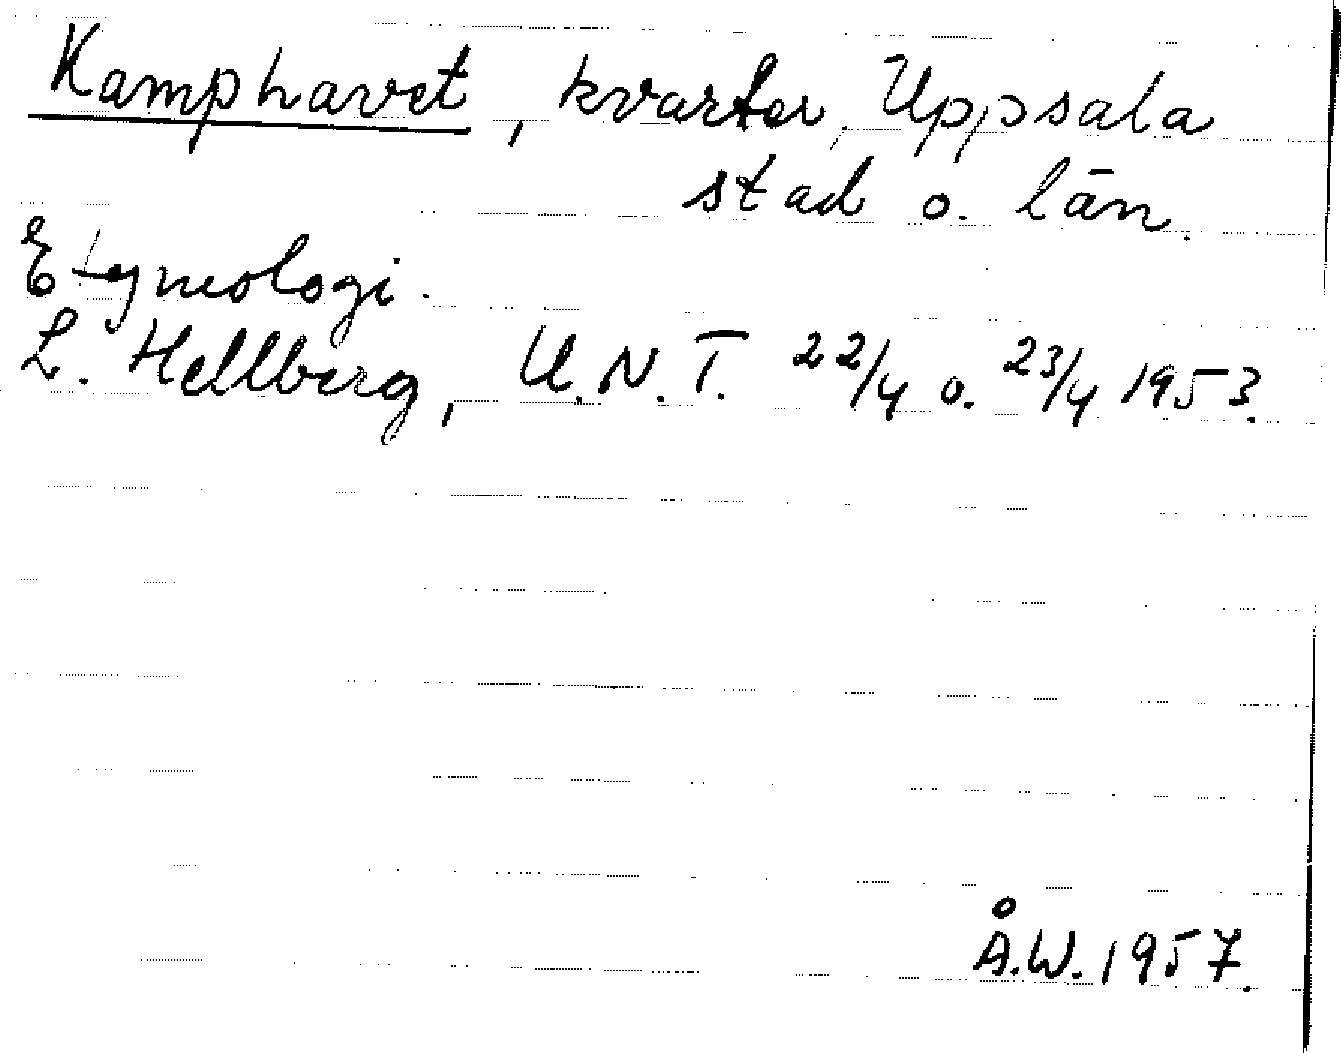 Kamphavet, kvarter, Uppsala
stad o. län.
Etymologi.
L. Hellberg, U.N.T. 22/4 o. 23/4 1953.
Å.W. 1957.